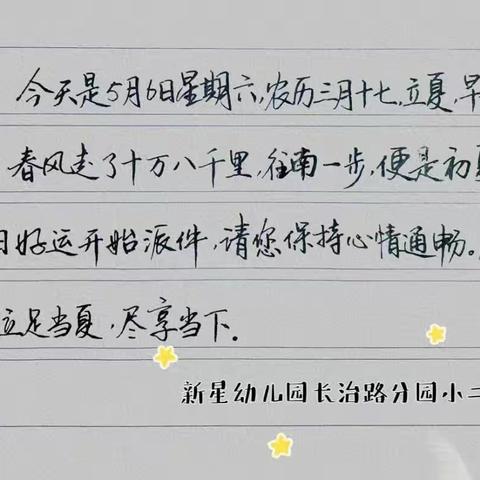 今天是5月6日星期六,农历三月十七,立夏,早
春风走了十万八千里,往南一步,便是初夏
日好运开始派件,请您保持心情通畅。
立足当夏,尽享当下。
新星幼儿园长治路分园小二